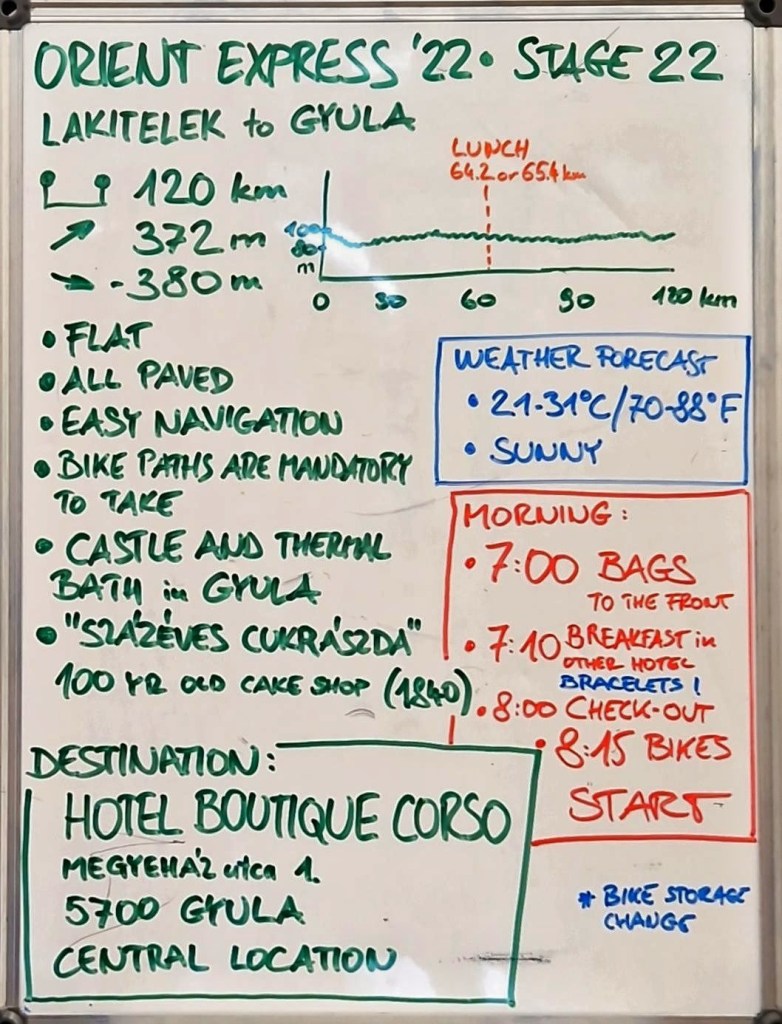 ORIENT EXPRESS '22 • STAGE 22
LAKITELEK to GYULA
120 km
372 m
-380 m
LUNCH
64.2 or 65.4 km
100
80
m
0 30 60 90 120 km
• FLAT
• ALL PAVED
• EASY NAVIGATION
• BIKE PATHS ARE MANDATORY
TO TAKE
• CASTLE AND THERMAL
BATH in GYULA
• "SZÁZÉVES CUKRÁSZDA"
100 YR OLD CAKE SHOP (1840)
WEATHER FORECAST
• 21-31°C/70-88°F
• SUNNY
MORNING:
• 7:00 BAGS
TO THE FRONT
• 7:10 BREAKFAST in
OTHER HOTEL
BRACELETS!
• 8:00 CHECK-OUT
• 8:15 BIKES
START
DESTINATION:
HOTEL BOUTIQUE CORSO
MEGYEHÁZ utca 1.
5700 GYULA
CENTRAL LOCATION
* BIKE STORAGE
CHANGE